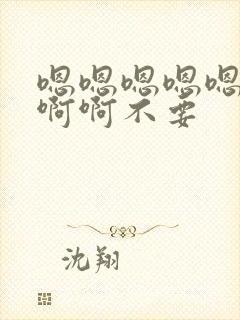 嗯嗯嗯嗯嗯
啊啊不要
沈翔